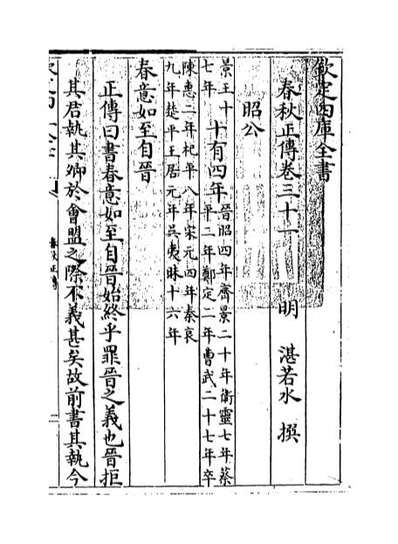 欽定四庫全書
春秋正傳卷三十一
明 湛若水 撰
昭公
景王十七年
十有四年
晉昭四年齊景二十年衛靈七年蔡
平二年鄭定二年曹武二十七年卒
陳惠二年杞平八年宋元四年秦哀
九年楚平王居元年吳夷昧十六年
春意如至自晉
正傳曰書春意如至自晉始終乎罪晉之義也晉拒
其君執其卿於會盟之際不義甚矣故前書其執今